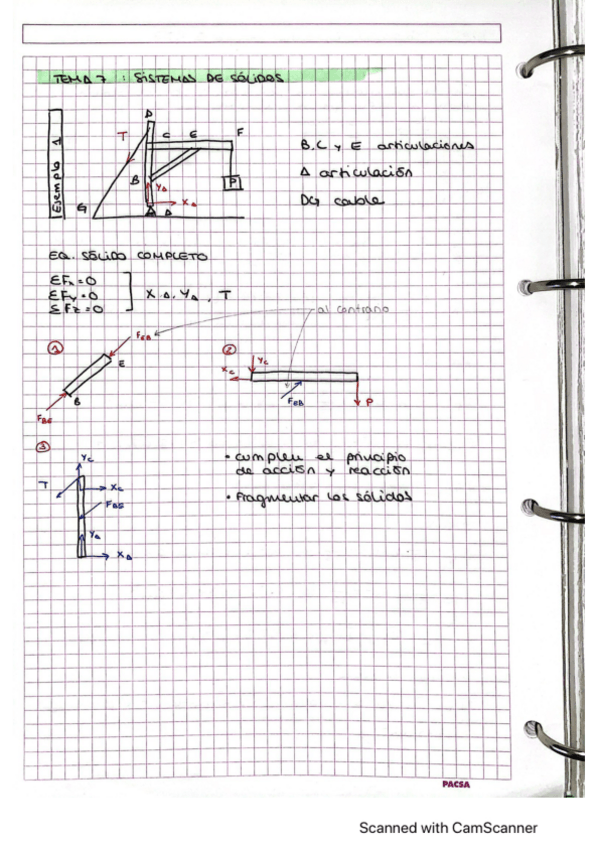 TEMA 7 : SISTEMAS DE SÓLIDOS
Ejemplo 1
D
T
C
E
F
B
YA
P
G
XA
A
B, C y E articulaciones
A articulación
DG cable
EQ. SÓLIDO COMPLETO
ΣFx=0
ΣFy=0
ΣFz=0
XA, YA, T
al contrario
1
FEB
E
B
FBE
2
YC
XC
FEB
P
3
YC
T
XC
FBE
YA
XA
• cumplen el principio
de acción y reacción
• Fragmentar los sólidos
PACSA
Scanned with CamScanner